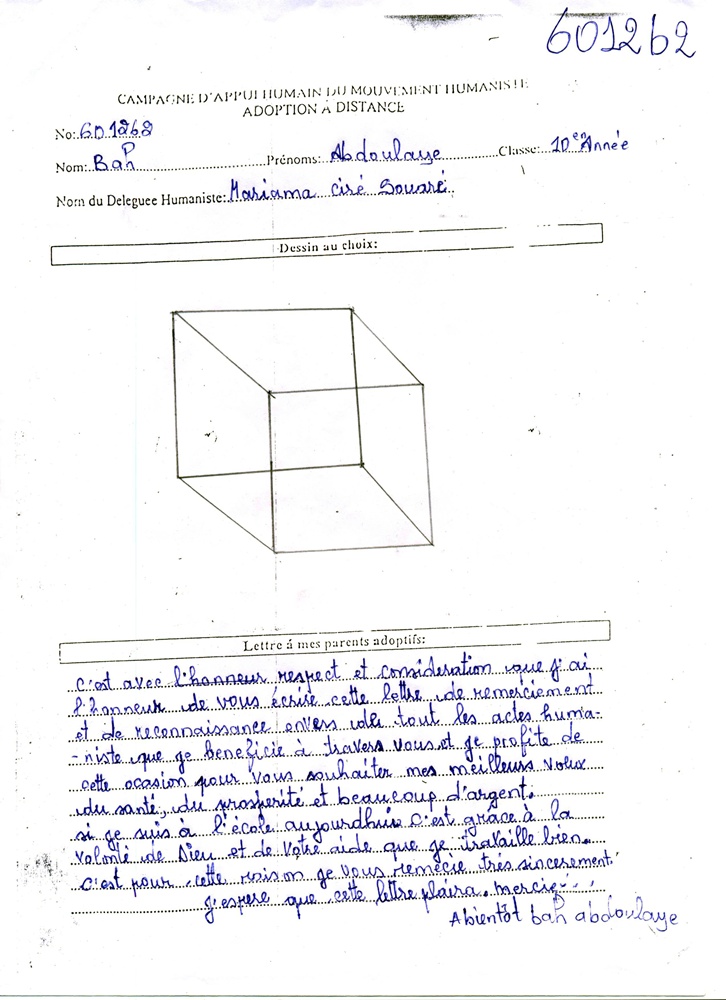 601262
CAMPAGNE D'APPUI HUMAIN DU MOUVEMENT HUMANISTE
ADOPTION A DISTANCE
No: 601262
Nom: Bah Prénoms: Abdoulaye Classe: 10en Année
Nom du Deleguee Humaniste: Mariama Ciré Souaré
Dessin au choix:
Lettre á mes parents adoptifs:
C'est avec l'honneur respect et consideration que j'ai
l'honneur de vous écrire cette lettre de remerciement
et de reconnaissance envers de tout les actes huma-
-niste que je beneficie à travers vous et je profite de
cette ocasion pour vous souhaiter mes meilleurs voeux
du santé, du prosperité et beaucoup d'argent.
si je suis à l'école aujourdhui c'est grâce à la
volonté de Dieu et de votre aide que je travaille bien.
C'est pour cette raison je vous remecie très sincerement
j'espere que cette lettre plaira. mercie...
Abientôt bah abdoulaye